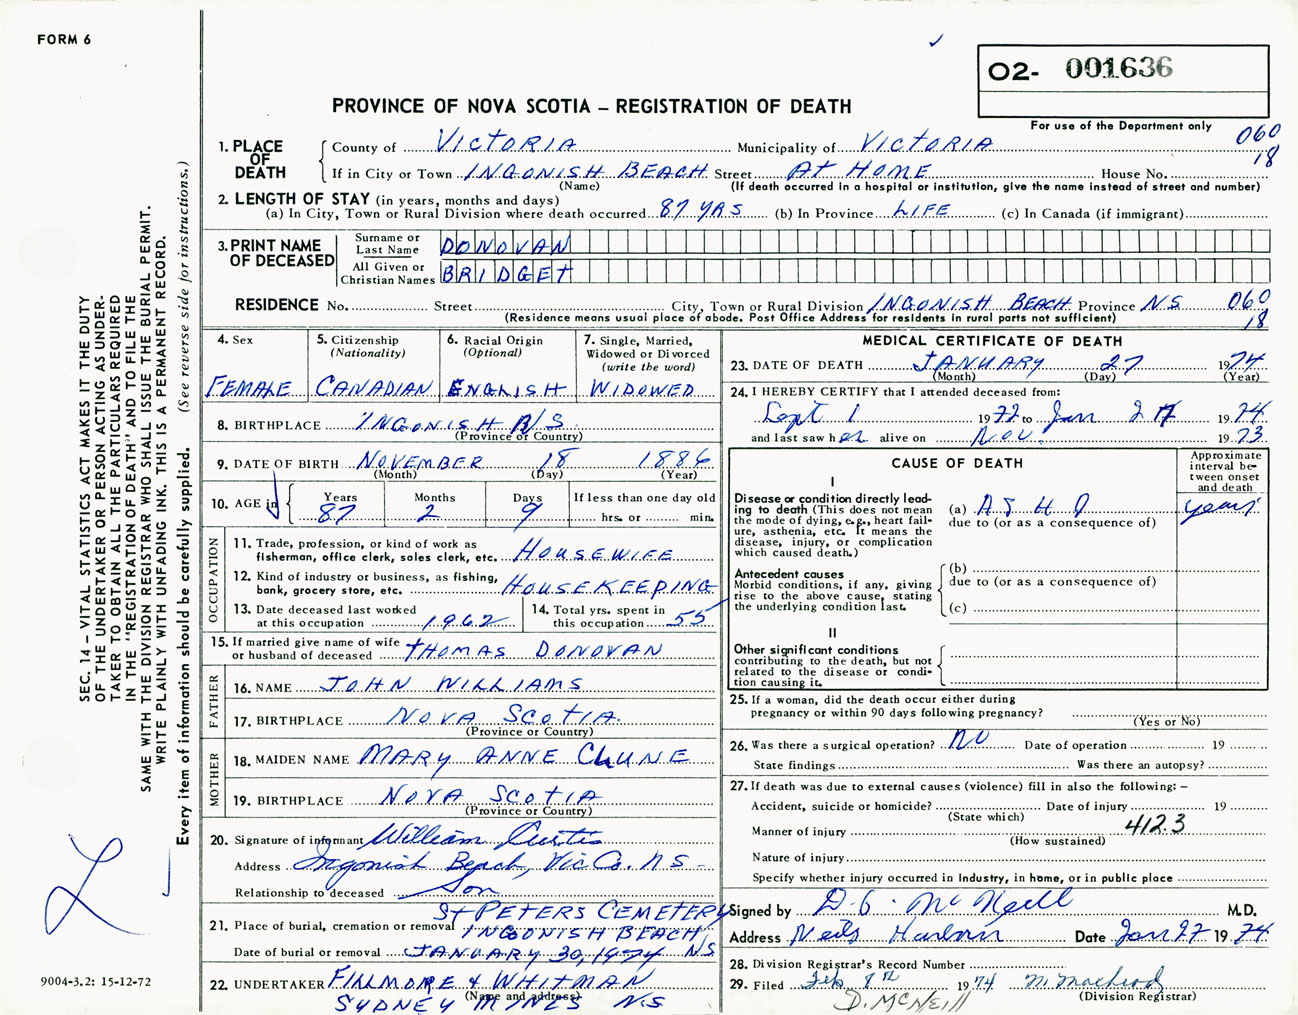 FORM 6
✓
O2- 001636
PROVINCE OF NOVA SCOTIA – REGISTRATION OF DEATH
For use of the Department only
060
18
1. PLACE OF DEATH
County of VICTORIA Municipality of VICTORIA
If in City or Town INGONISH BEACH Street At HOME House No.
(Name) (If death occurred in a hospital or institution, give the name instead of street and number)
2. LENGTH OF STAY (in years, months and days)
(a) In City, Town or Rural Division where death occurred 87 YRS (b) In Province LIFE (c) In Canada (if immigrant)
3. PRINT NAME OF DECEASED
Surname or Last Name DONOVAN
All Given or Christian Names BRIDGET
RESIDENCE No. Street City, Town or Rural Division INGONISH BEACH Province N.S. 060
(Residence means usual place of abode. Post Office Address for residents in rural parts not sufficient) 18
4. Sex
FEMALE
5. Citizenship (Nationality)
CANADIAN
6. Racial Origin (Optional)
ENGLISH
7. Single, Married, Widowed or Divorced (write the word)
WIDOWED
8. BIRTHPLACE INGONISH N.S.
(Province or Country)
9. DATE OF BIRTH NOVEMBER 18 1886
(Month) (Day) (Year)
10. AGE in
Years Months Days If less than one day old
87 2 9 hrs. or min.
OCCUPATION
11. Trade, profession, or kind of work as
fisherman, office clerk, sales clerk, etc. HOUSEWIFE
12. Kind of industry or business, as fishing,
bank, grocery store, etc. HOUSEKEEPING
13. Date deceased last worked
at this occupation 1962
14. Total yrs. spent in
this occupation 55
15. If married give name of wife
or husband of deceased THOMAS DONOVAN
FATHER
16. NAME JOHN WILLIAMS
17. BIRTHPLACE NOVA SCOTIA.
(Province or Country)
MOTHER
18. MAIDEN NAME MARY ANNE CLUNE
19. BIRTHPLACE NOVA SCOTIA
(Province or Country)
20. Signature of informant William Curtis
Address Ingonish Beach, Vic Co. N S –
Relationship to deceased Son
21. Place of burial, cremation or removal St PETERS CEMETERY
INGONISH BEACH,
Date of burial or removal JANUARY 30, 1974 N.S
22. UNDERTAKER FILLMORE & WHITMAN
(Name and address)
SYDNEY MINES N.S
MEDICAL CERTIFICATE OF DEATH
23. DATE OF DEATH JANUARY 27 1974
(Month) (Day) (Year)
24. I HEREBY CERTIFY that I attended deceased from:
Sept 1 1972 to Jan 27 1974
and last saw her alive on Nov. 1973
CAUSE OF DEATH
Approximate interval between onset and death
I
Disease or condition directly lead-
ing to death (This does not mean
the mode of dying, e.g., heart fail-
ure, asthenia, etc. It means the
disease, injury, or complication
which caused death.)
(a) A S H D years
due to (or as a consequence of)
Antecedent causes
Morbid conditions, if any, giving
rise to the above cause, stating
the underlying condition last.
(b)
due to (or as a consequence of)
(c)
II
Other significant conditions
contributing to the death, but not
related to the disease or condi-
tion causing it.
25. If a woman, did the death occur either during
pregnancy or within 90 days following pregnancy?
(Yes or No)
26. Was there a surgical operation? No Date of operation 19
State findings Was there an autopsy?
27. If death was due to external causes (violence) fill in also the following: –
Accident, suicide or homicide? Date of injury 19
(State which) 412.3
Manner of injury
(How sustained)
Nature of injury
Specify whether injury occurred in industry, in home, or in public place
Signed by D. G. McNeill M.D.
Address Neils Harbour Date Jan 27 1974
28. Division Registrar's Record Number
29. Filed Feb 8th 1974 M. MacLeod
(Division Registrar)
D. McNEill
SEC. 14 – VITAL STATISTICS ACT MAKES IT THE DUTY
OF THE UNDERTAKER OR PERSON ACTING AS UNDER-
TAKER TO OBTAIN ALL THE PARTICULARS REQUIRED
IN THE "REGISTRATION OF DEATH" AND TO FILE THE
SAME WITH THE DIVISION REGISTRAR WHO SHALL ISSUE THE BURIAL PERMIT.
WRITE PLAINLY WITH UNFADING INK. THIS IS A PERMANENT RECORD.
Every item of information should be carefully supplied. (See reverse side for instructions.)
9004-3.2: 15-12-72